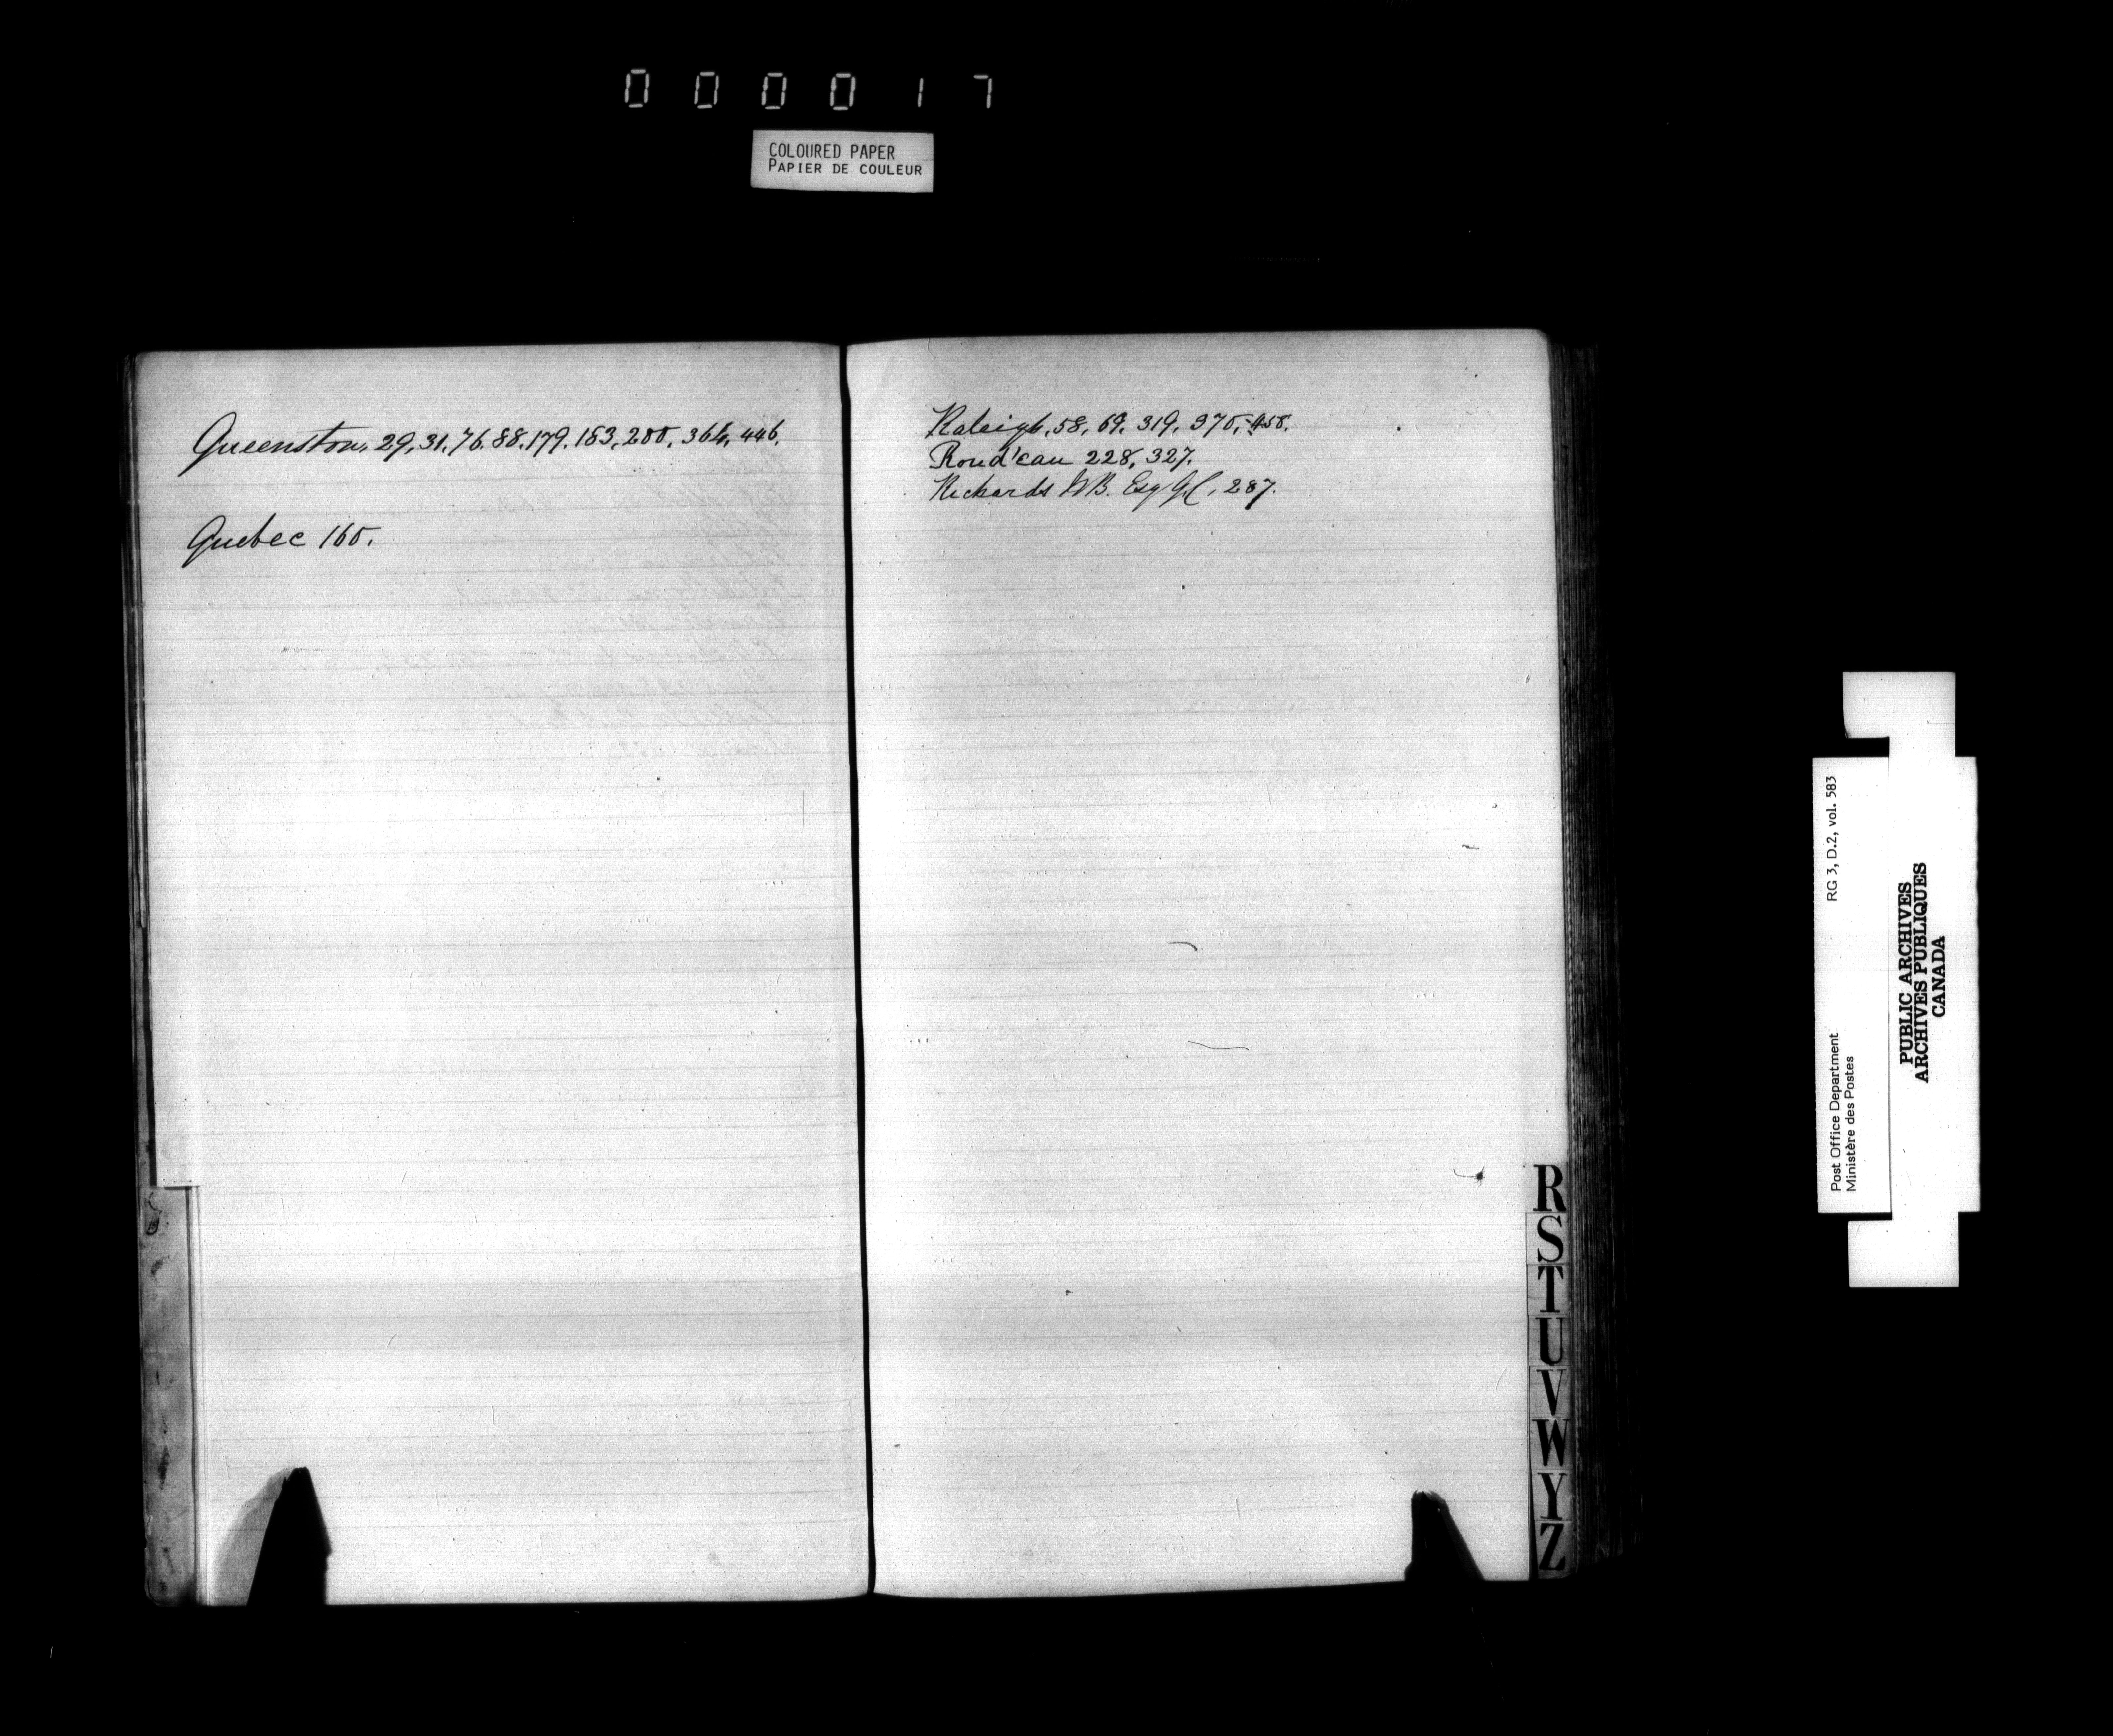 000017
COLOURED PAPER
PAPIER DE COULEUR
Queenston, 29, 31, 76, 88, 179, 183, 200, 364, 446.
Quebec 160.
Raleigh, 58, 69, 319, 370, 458.
Rond'eau 228, 327.
Richards WB. Esq Q.C, 287.
R
S
T
U
V
W
Y
Z
Post Office Department
Ministère des Postes
RG 3, D.2, vol. 583
PUBLIC ARCHIVES
ARCHIVES PUBLIQUES
CANADA